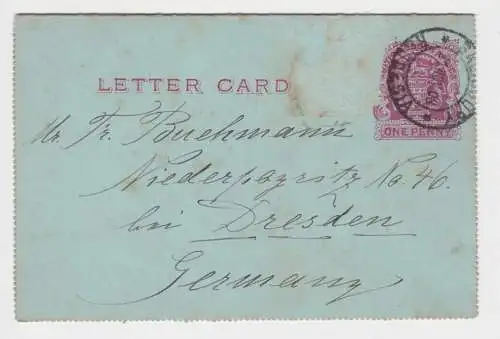 LETTER CARD
ONE PENNY
Mr. Fr. Buchmann
Niederpoyritz No. 46.
bei Dresden
Germany